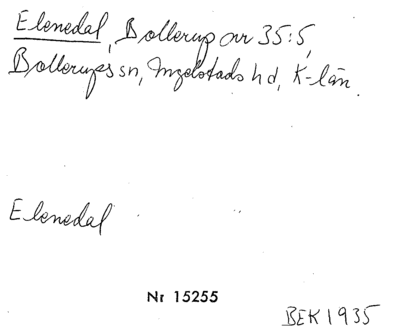 Elenedal, Bollerup nr 35:5,
Bollerups sn, Ingelstads hd, K-län.
Elenedal
Nr 15255
BEK 1935